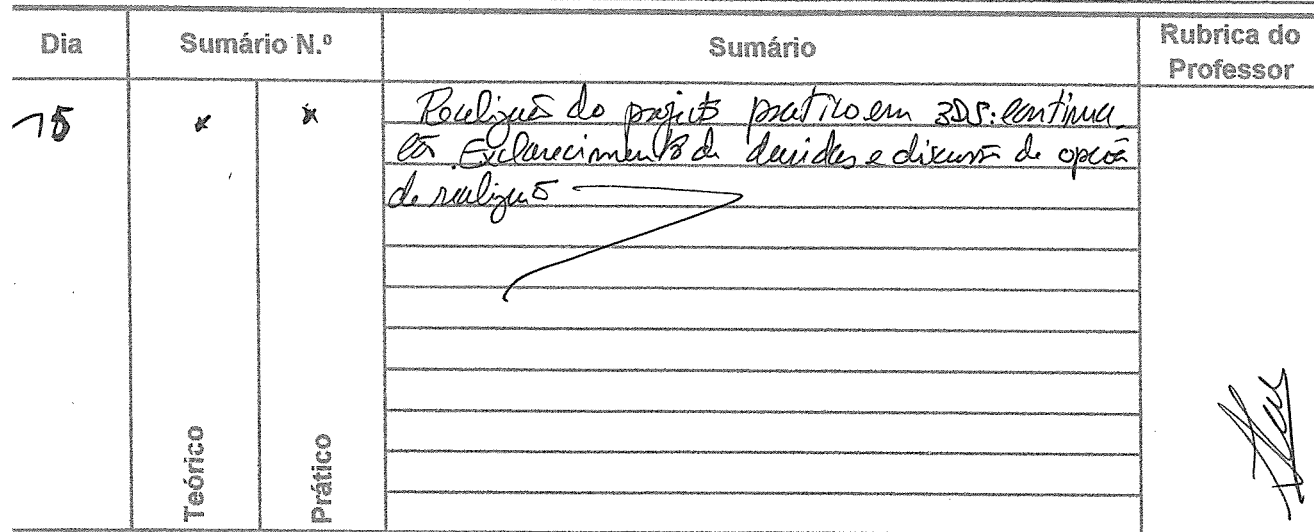 Dia Sumário N.º Sumário Rubrica do Professor
15 x x Realização do projecto pratico em 3DS: continua_
ção. Esclarecimento de duvidas e discussão de opção
de realização
Teórico
Prático